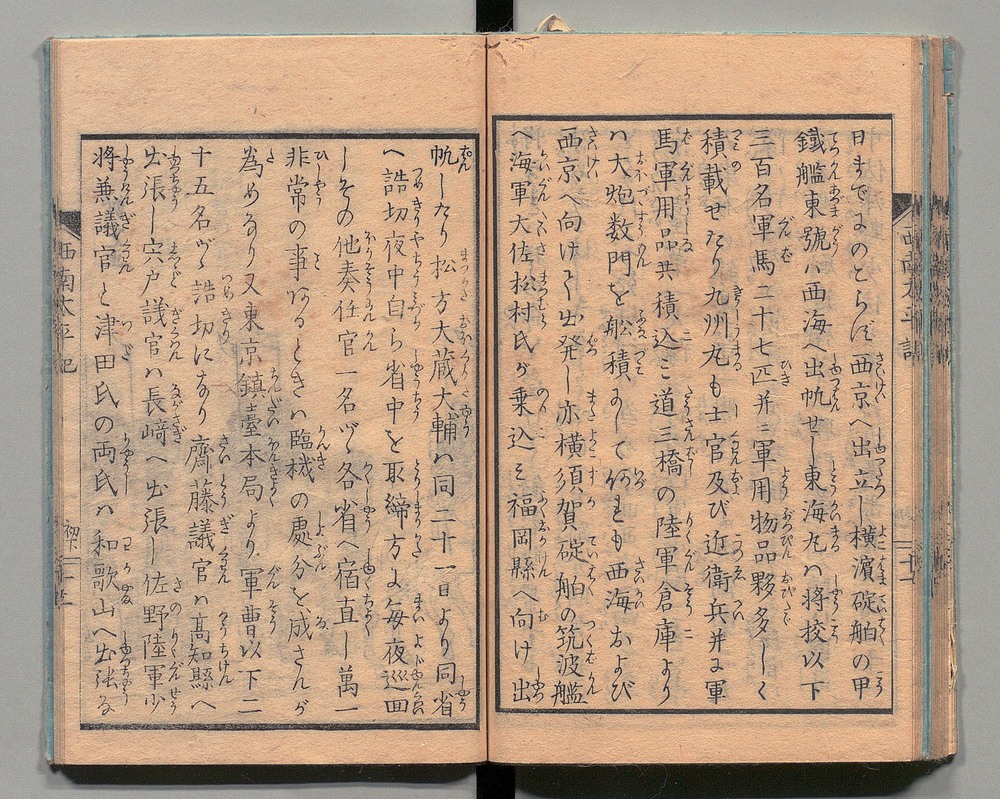 日までにのこらず西京へ出立し横濱碇舶の甲
鐵艦東號ハ西海へ出帆せし東海丸ハ将校以下
三百名軍馬二十七匹并ニ軍用物品夥多しく
積載せたり九州丸も士官及び近衛兵并に軍
馬軍用品共積込ミ道三橋の陸軍倉庫より
ハ大炮数門を舩積ミして何も西海および
西京へ向けて出発し亦横須賀碇舶の筑波艦
へ海軍大佐松村氏が乗込ミ福岡縣へ向け出
帆したり松方大蔵大輔ハ同二十一日より同省
へ詰切夜中自ら省中を取締方に毎夜巡囬
しその他奏任官一名ヅヽ各省へ宿直し萬一
非常の事あるときハ臨機の處分を成さんが
為めなり又東京鎮臺本局より軍曹以下二
十五名ヅヽ詰切になり齋藤議官ハ髙知縣へ
出張し宍戸議官ハ長﨑へ出張し佐野陸軍少
将兼議官と津田氏の両氏ハ和歌山へ出張な
西南太平記